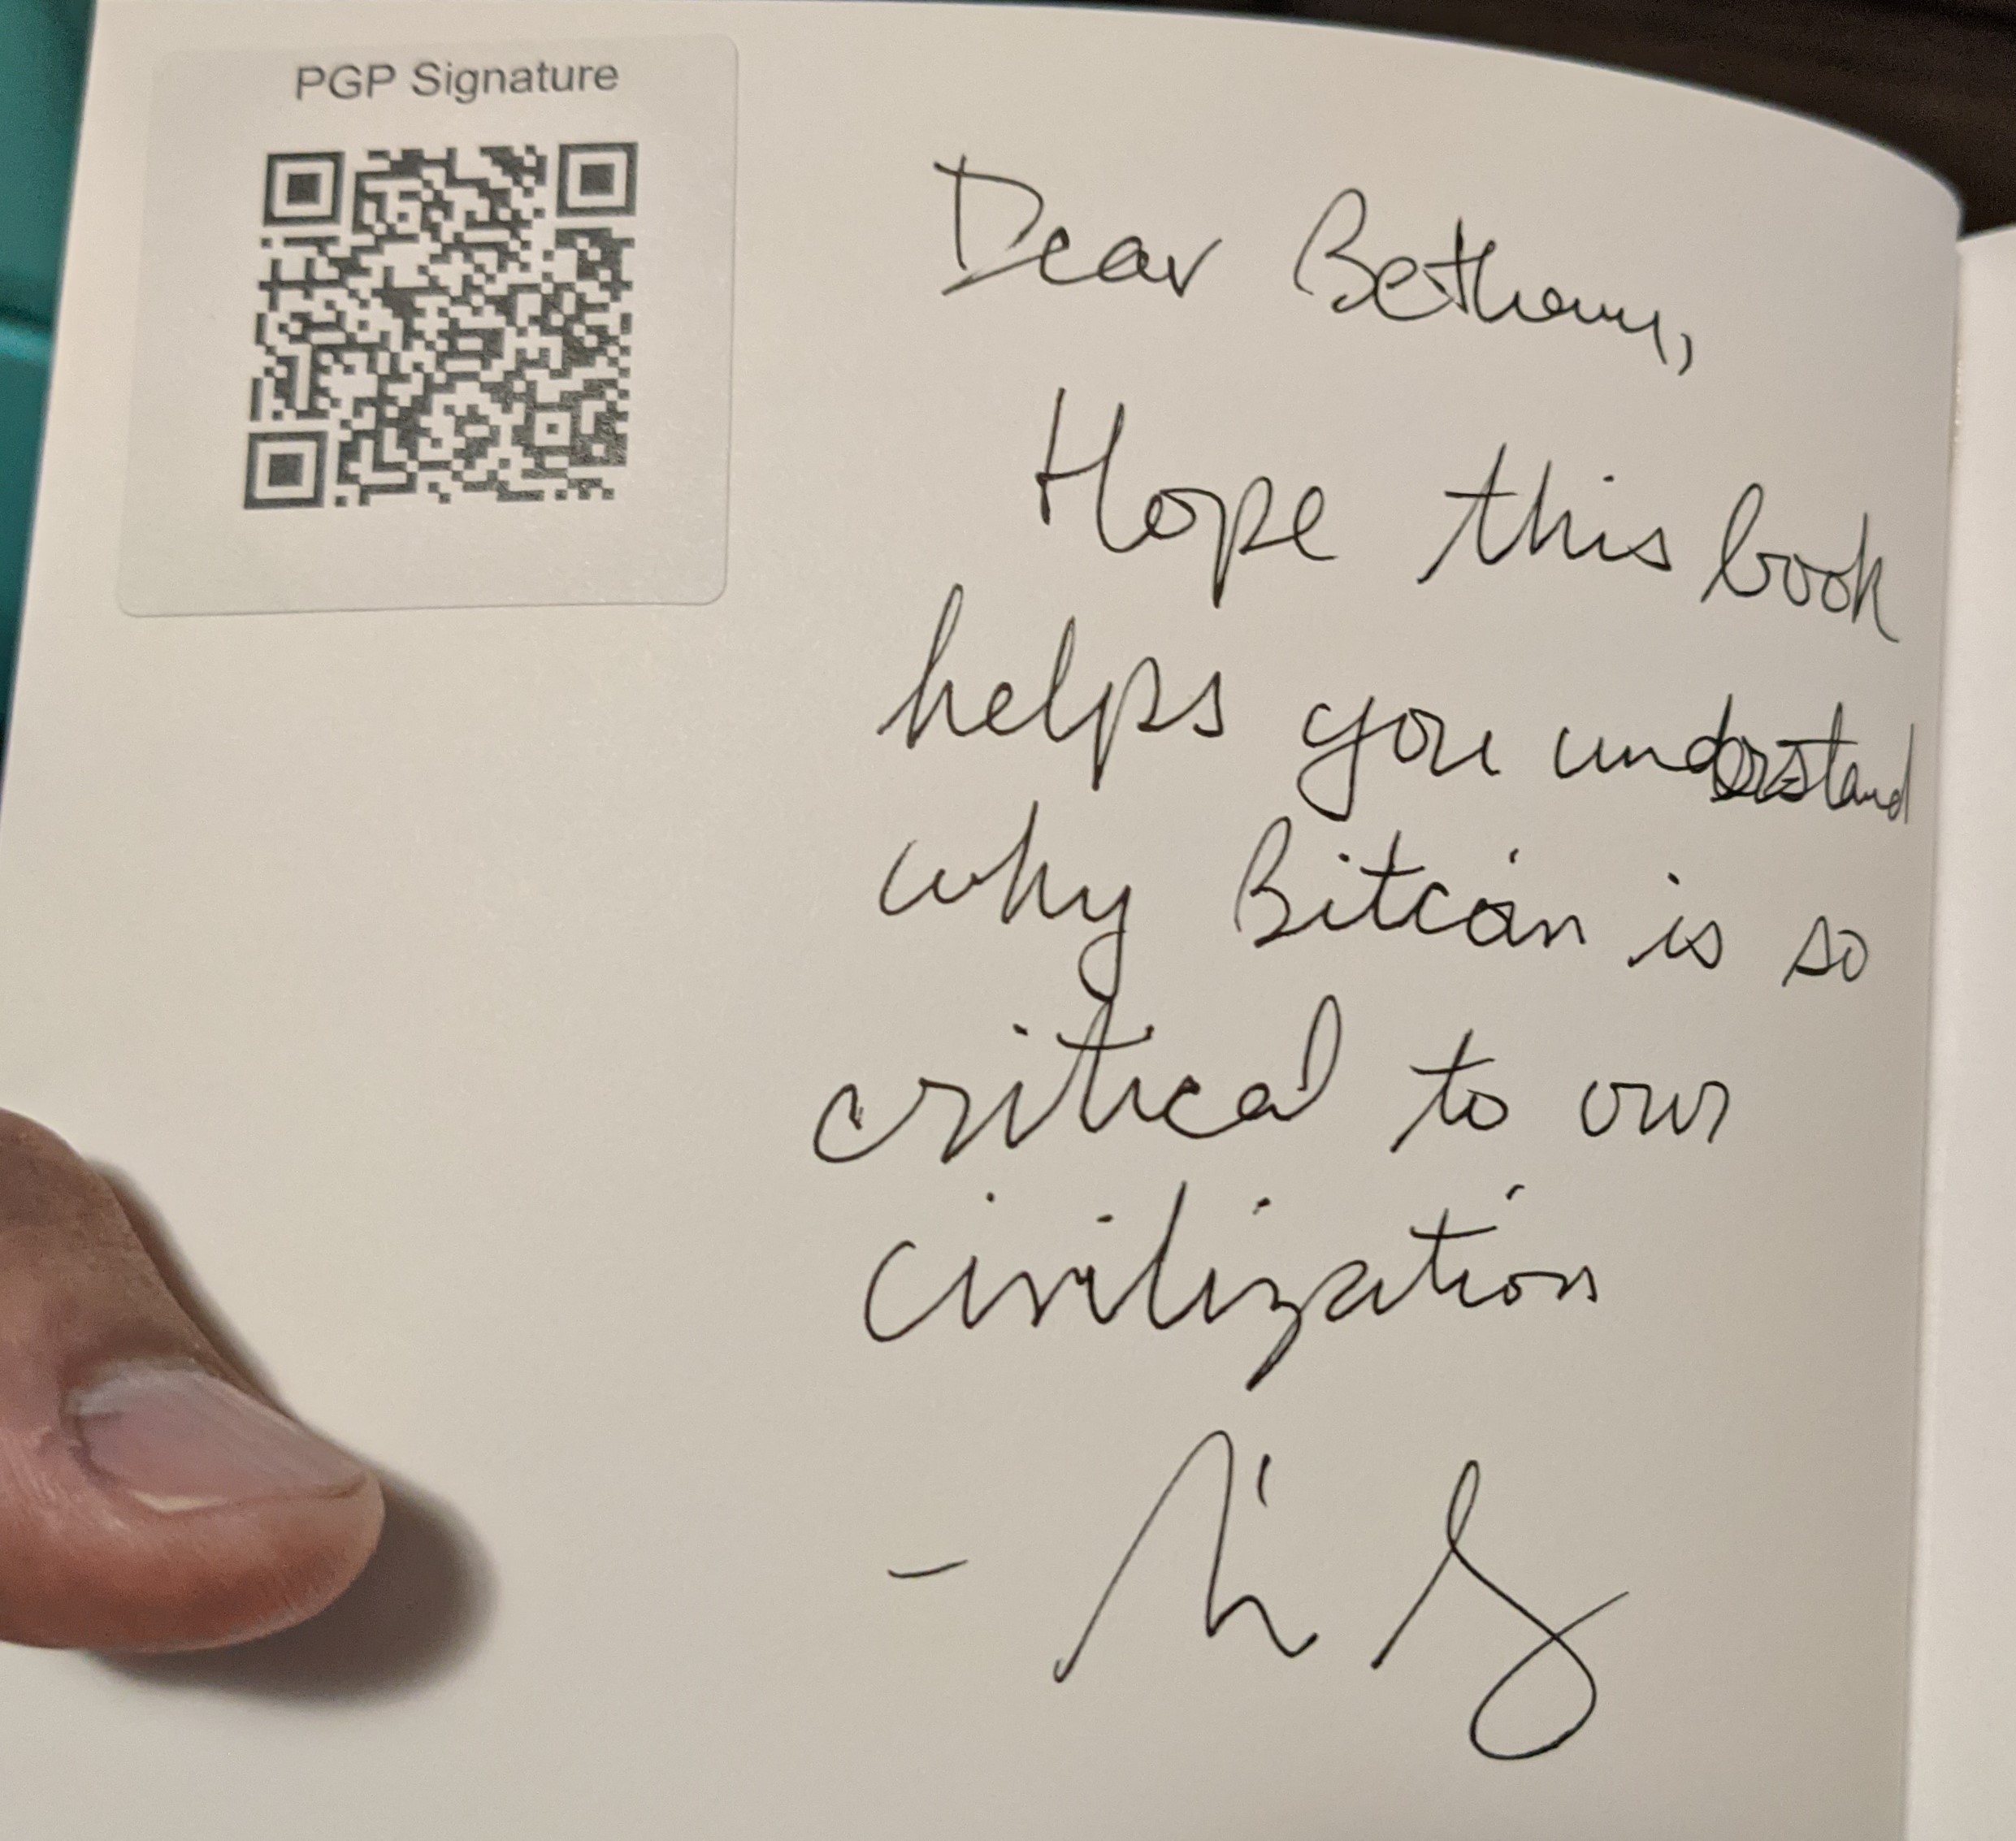 PGP Signature
Dear Bethany,
Hope this book
helps you understand
why Bitcoin is so
critical to our
civilization
-